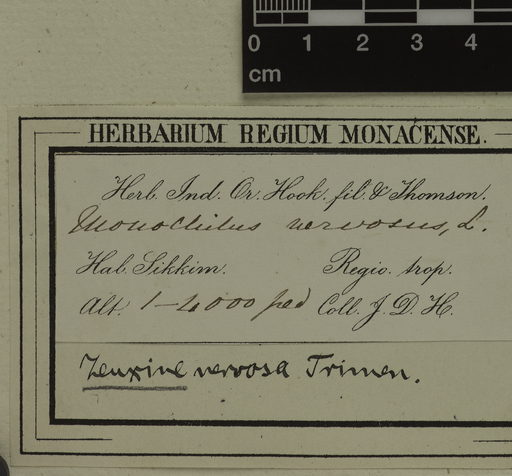 0 1 2 3 4
cm
HERBARIUM REGIUM MONACENSE.
Herb. Ind. Or. Hook. fil. & Thomson.
Monochilus nervosus, L.
Hab. Sikkim. Regio. trop.
Alt. 1-4000 ped Coll. J. D. H.
Zeuxine nervosa Trimen.